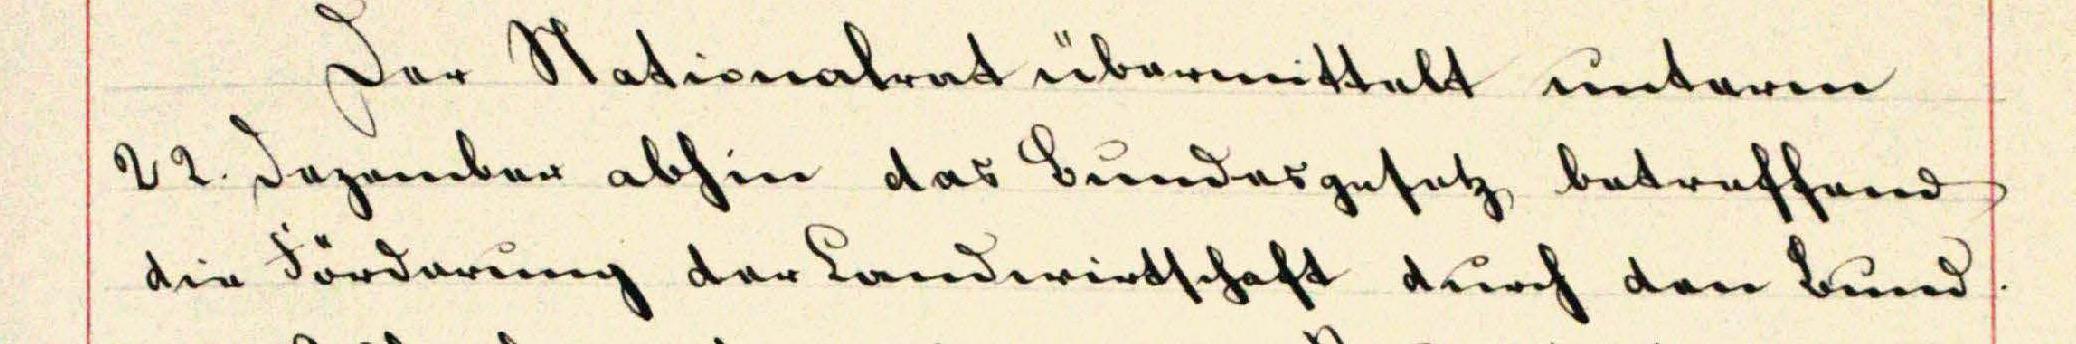 Der Nationalrat übermittelt unterm
22. Dezember abhin das Bundesgesetz, betreffend
die Förderung der Landwirtschaft durch den Bund.